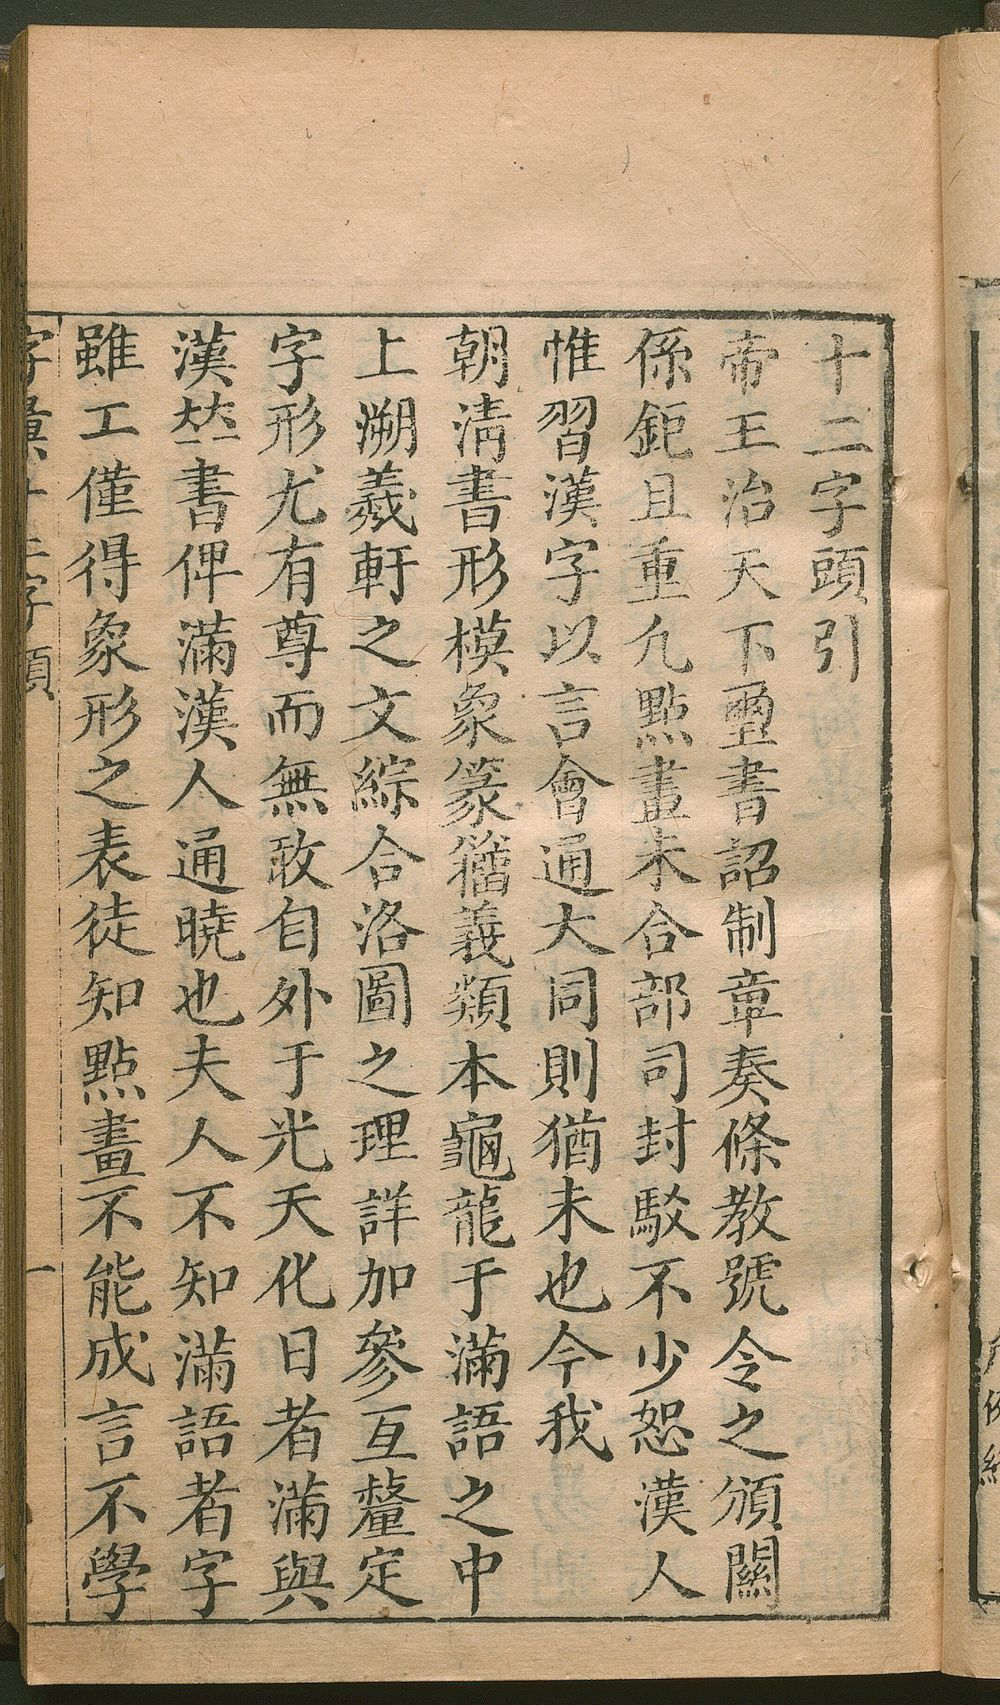 十二字頭引
帝王治天下璽書詔制章奏條教號令之頒關
係鉅且重凢點畫未合部司封駁不少恕漢人
惟習漢字以言會通大同則猶未也今我
朝清書形模象篆籀義類本龜龍于滿語之中
上溯羲軒之文綜合洛圖之理詳加參互釐定
字形尤有尊而無敢自外于光天化日者滿與
漢並書俾滿漢人通曉也夫人不知滿語者字
雖工僅得象形之表徒知點畫不能成言不學
字彙十二字頭
一